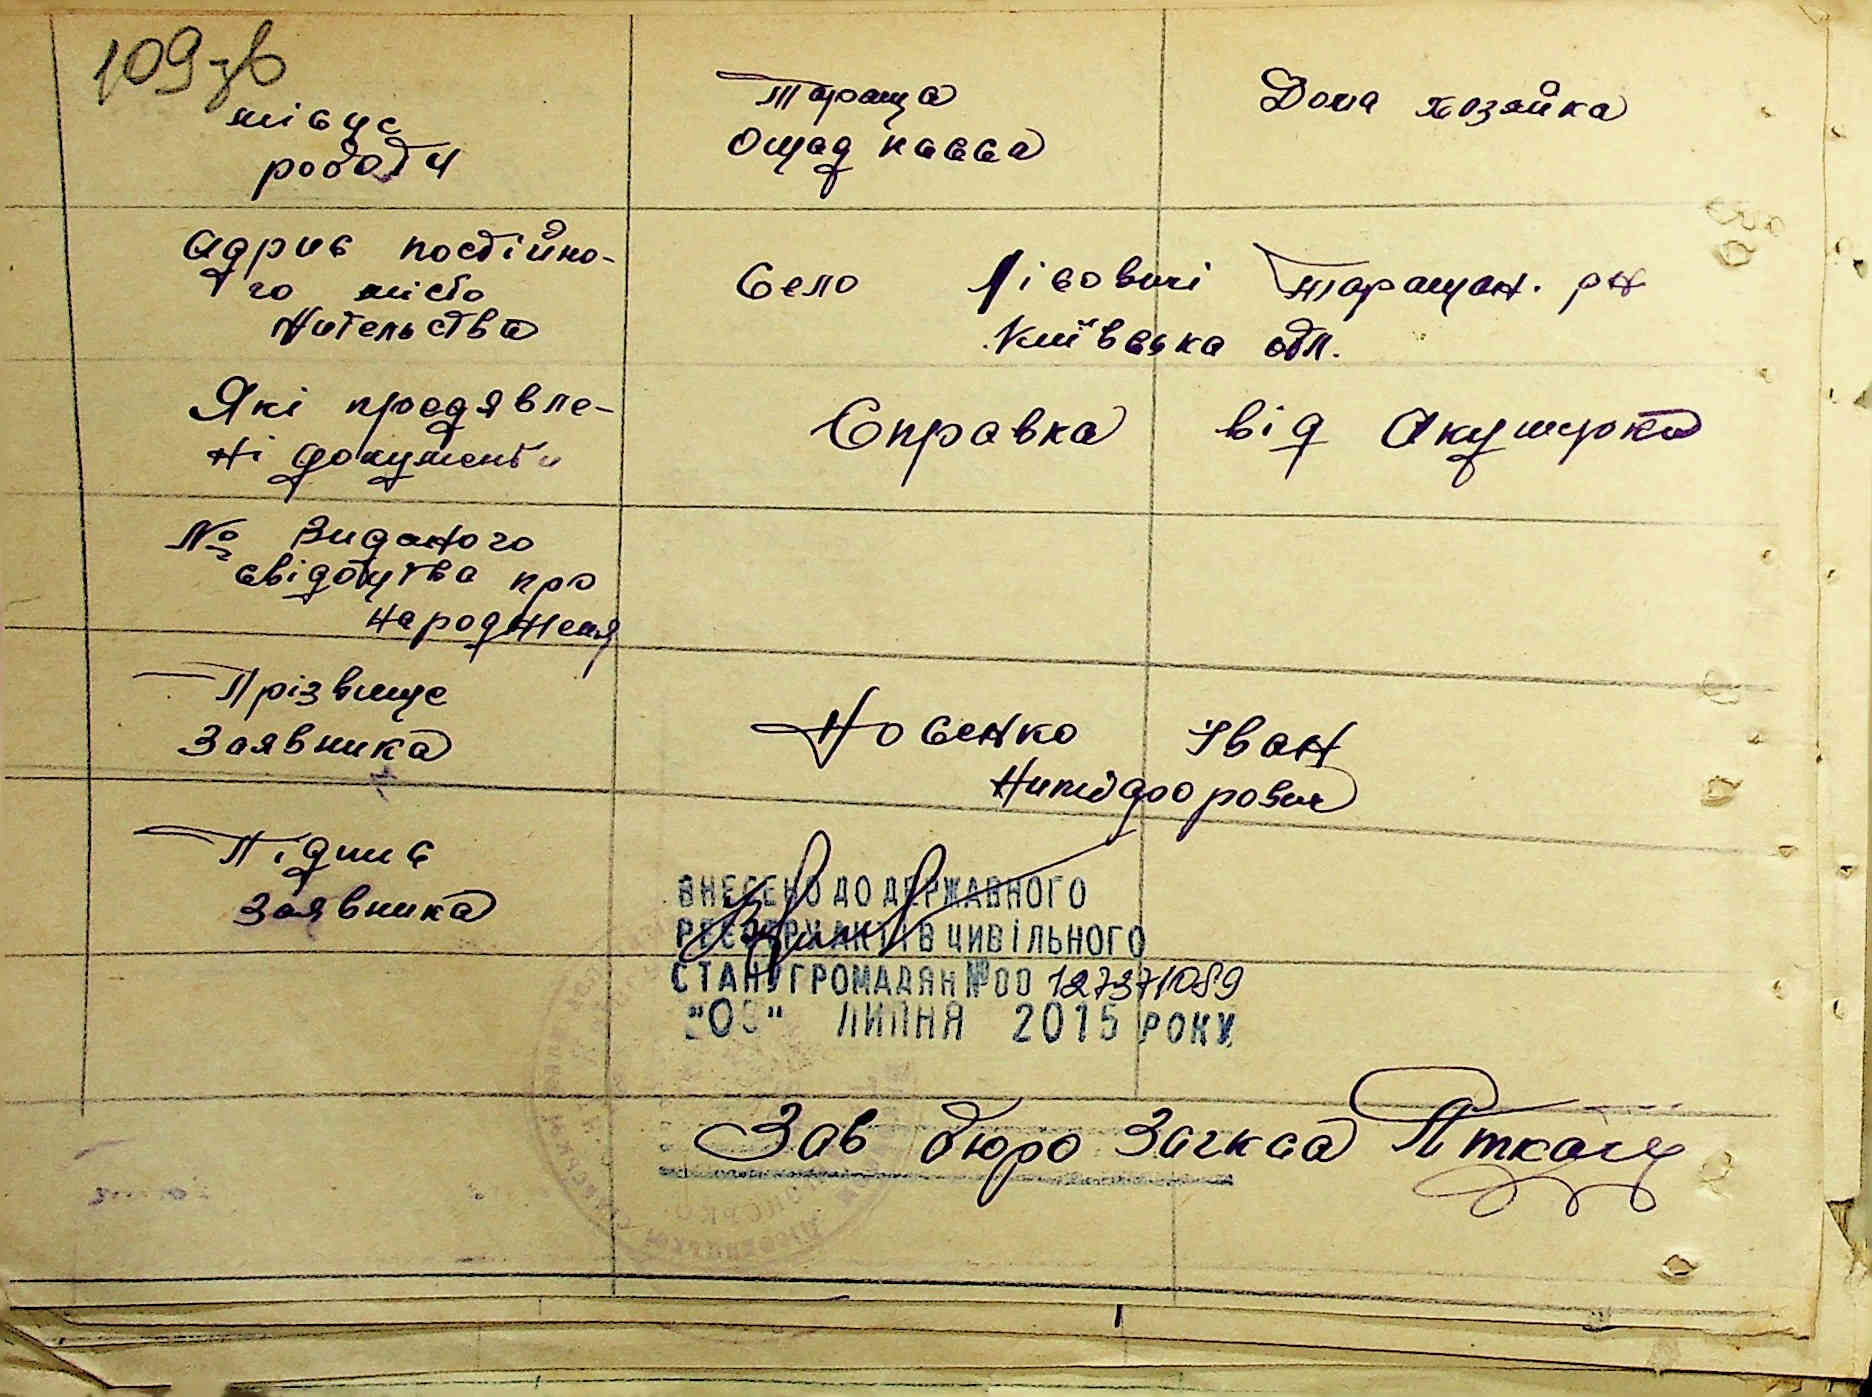 109 зв
місце
роботи
Тараща
Ощад касса
Дома хозяйка
Адрис постійно-
го місто
жительства
Село Лісовичі Таращан. р-н
Київська обл.
Які предявле-
ні документи
Справка від Акушурки
№ Виданого
свідоцтва про
народженя
Прізвище
Заявника
Носенко Іван
Никідфорович
Підпис
Заявника
ВНЕСЕНО ДО ДЕРЖАВНОГО
РЕЄСТРУ АКТІВ ЦИВІЛЬНОГО
СТАНУ ГРОМАДЯН №00 127371089
ЛИПНЯ 2015 РОКУ
Зав бюро Загкса